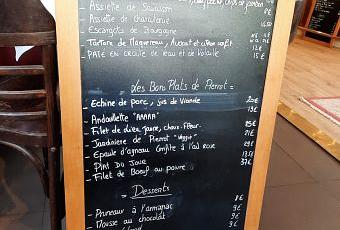 _ Assiette de Saucisson
_ Assiette de charcuterie 16,50
_ Escargots de Bourgogne
_ Tartare de Maquereau, Avocat et citron confit
_ PATE EN CROUTE de veau et de Volaille 15 €
= Les Bons Plats de Pierrot =
_ Echine de porc, jus de Viande 20€
_ Andouillette "AAAAA" 19€
_ Filet de dieu jaune, choux-fleur. 25€
_ Jardiniere de Pierrot "veggie" 21€
_ Epaule d'agneau Confite à l'ail rose 29€
_ Plat Du Jour 17€
_ Filet de Boeuf au poivre 37€
= Desserts
_ Pruneaux à l'armagnac 8€
_ Mousse au chocolat 9€
9€